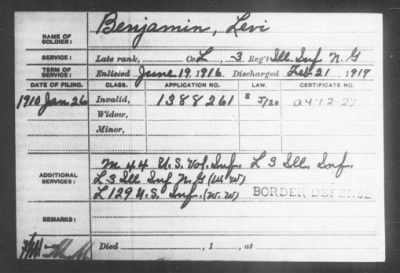 Benjamin, Levi
NAME OF SOLDIER:
SERVICE: Late rank, Co. L, 3 Reg't Ill. Inf. N.G
TERM OF SERVICE: Enlisted June 19, 1916, Discharged Feb 21, 1919
DATE OF FILING. CLASS. APPLICATION NO. LAW. CERTIFICATE NO.
Jan 26 Invalid, 1388261
Widow,
Minor,
ADDITIONAL SERVICES: M 44 U.S. Vol. Inf. L 3 Ill. Inf.
L 3 Ill. Inf. N.G (W.W)
L 129 U.S. Inf. (W.W) BORDER DEFENSE
REMARKS:
Died , 1 , at